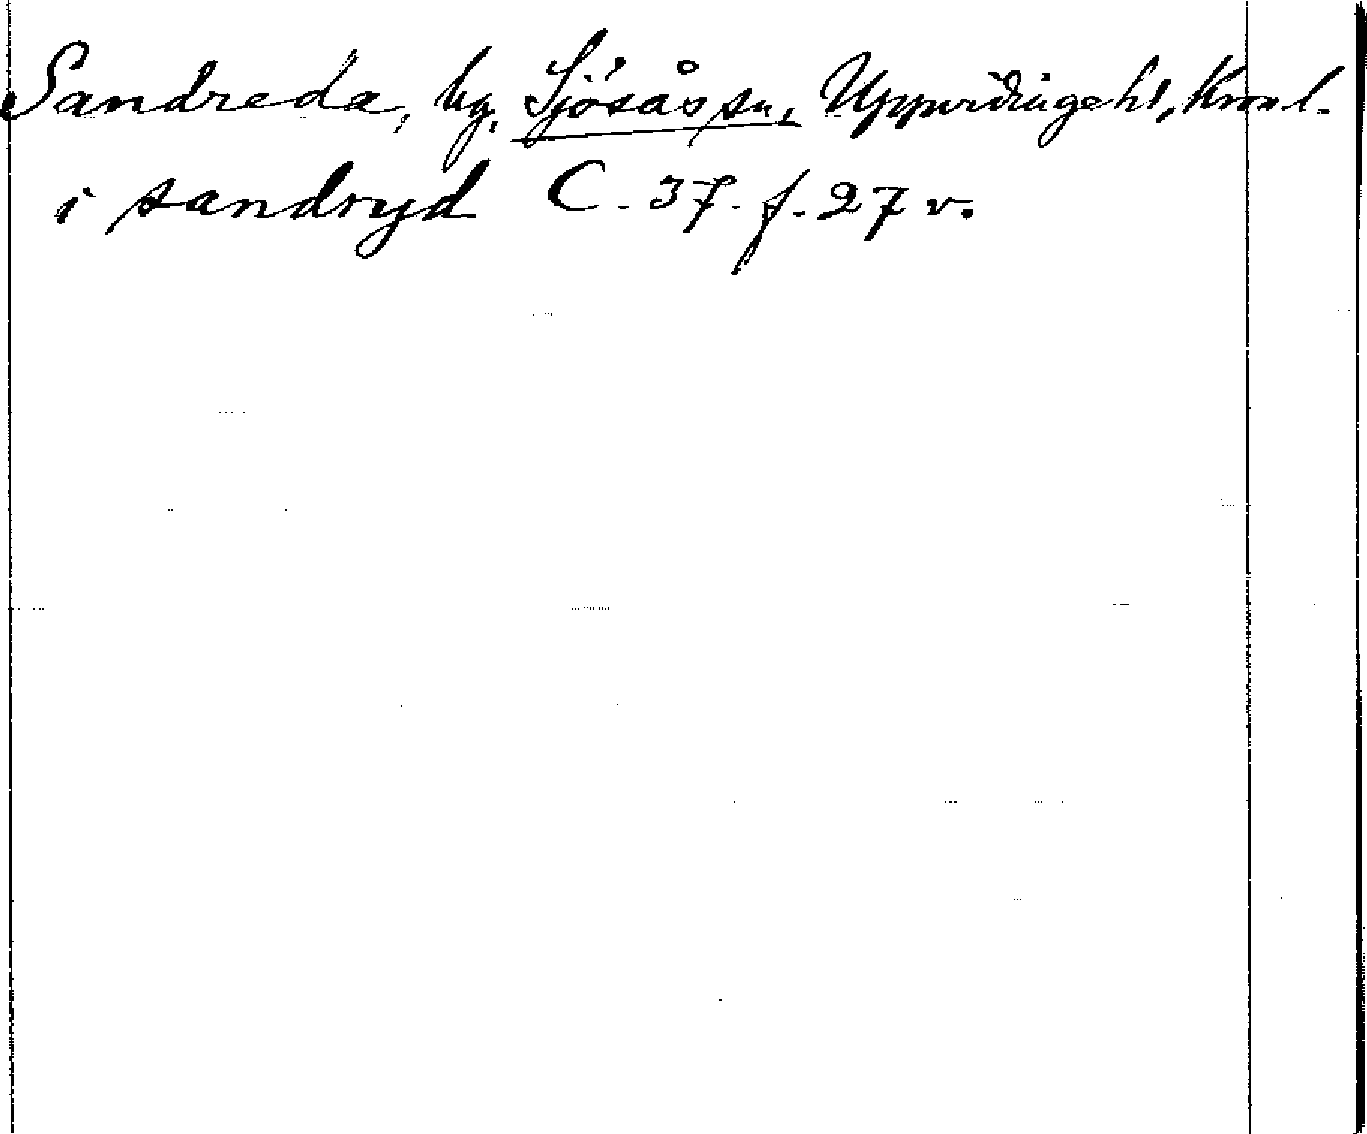 Sandreda, by, Sjösås sn, Uppvidinge hd, Kron. l.
i sandryd C. 37. f. 27 v.